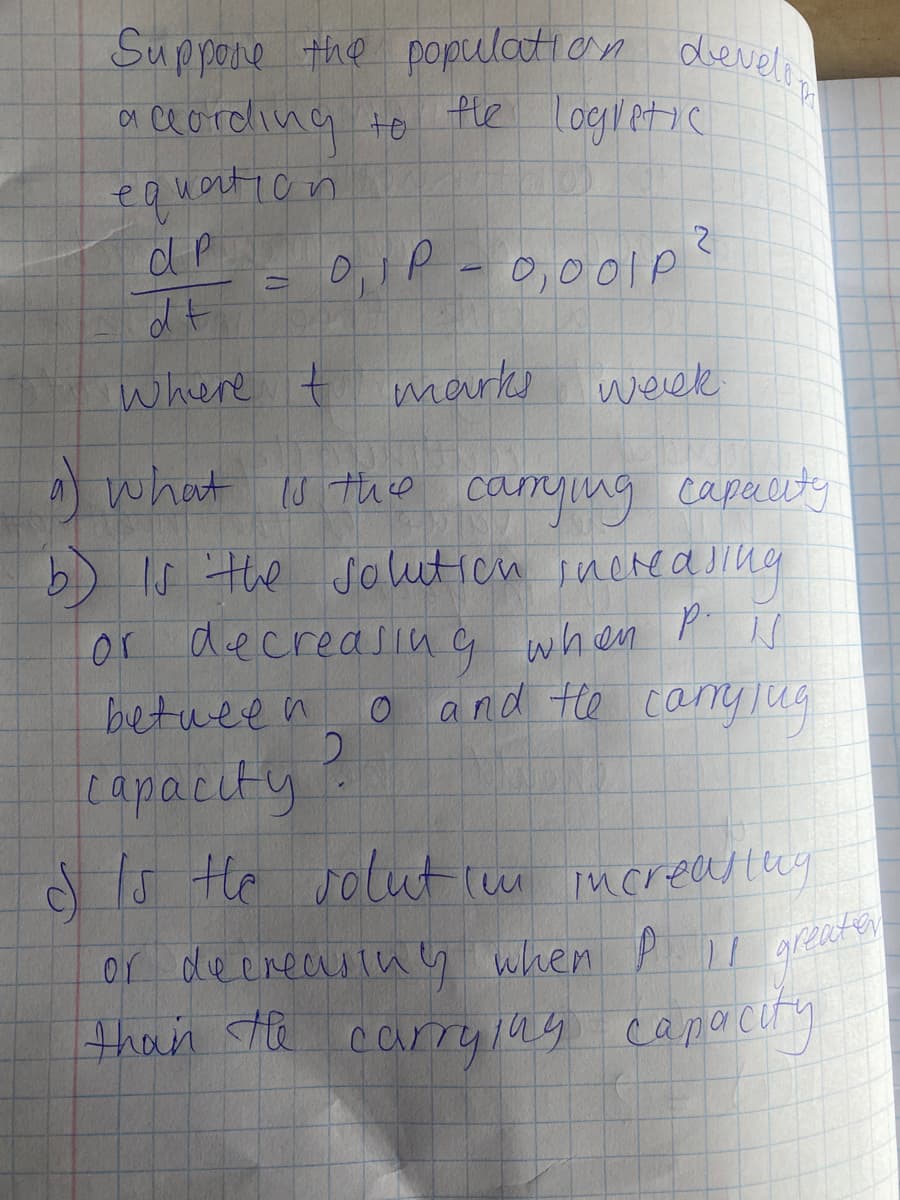 Suppose the population develops
according to the logistic
equation
dP/dt = 0,1P - 0,001P²
where t marks week.
a) What is the carrying capacity
b) Is the solution increasing
or decreasing when P is
between 0 and the carrying
capacity?
c) Is the solution increasing
or decreasing when P is greater
than the carrying capacity